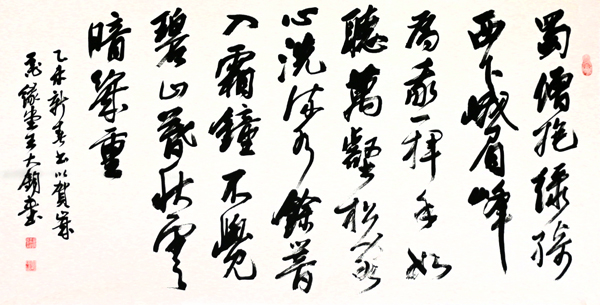 蜀僧抱綠綺
西下峨眉峰
為我一揮手如
聽萬壑松客
心洗流水餘響
入霜鐘不覺
碧山暮秋雲
暗幾重
乙未新春書以賀歲
緣堂